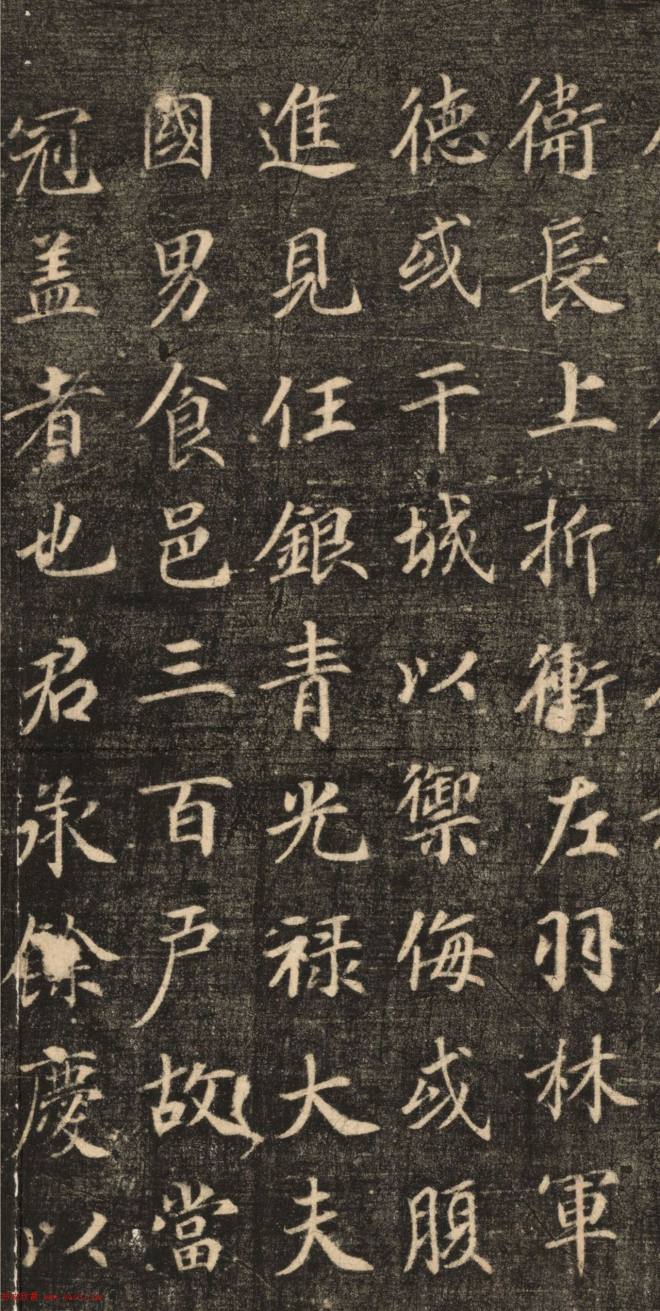 衛長上折衝左羽林軍
德或干城以禦侮或腹
進見任銀青光祿大夫
國男食邑三百戶故當
冠盖者也君承餘慶以